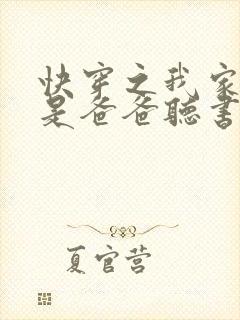 快穿之我家
是爸爸聽書
夏官营